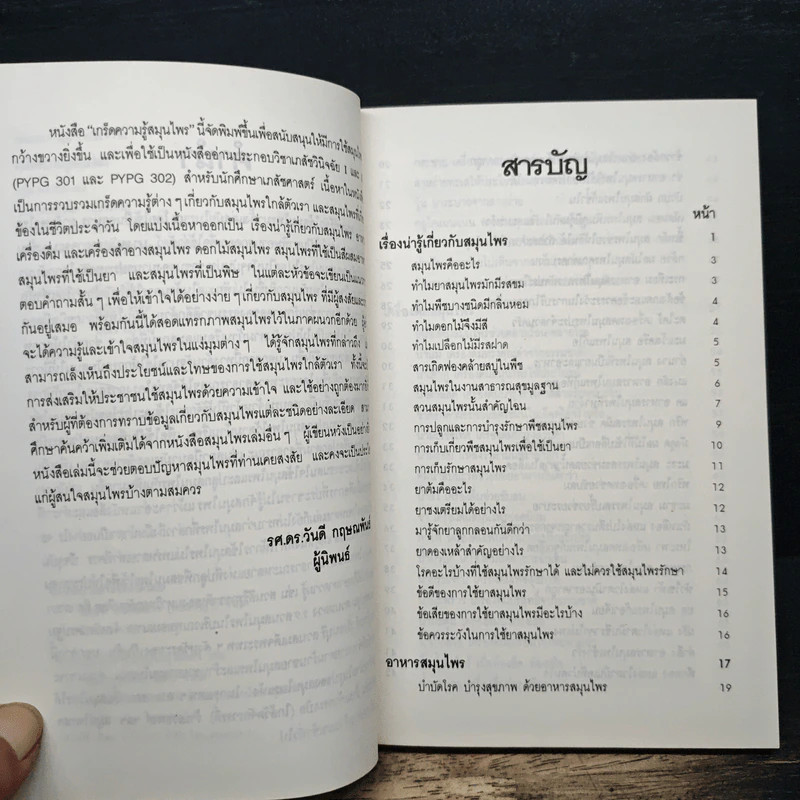 หนังสือ “เกร็ดความรู้สมุนไพร” นี้จัดพิมพ์ขึ้นเพื่อสนับสนุนให้มีการใช้สมุนไพร
กว้างขวางยิ่งขึ้น และเพื่อใช้เป็นหนังสืออ่านประกอบวิชาเภสัชวินิจฉัย 1 และ
(PYPG 301 และ PYPG 302) สำหรับนักศึกษาเภสัชศาสตร์ เนื้อหาในหนังสือ
เป็นการรวบรวมเกร็ดความรู้ต่าง ๆ เกี่ยวกับสมุนไพรใกล้ตัวเรา และสมุนไพรที่
ข้องในชีวิตประจำวัน โดยแบ่งเนื้อหาออกเป็น เรื่องน่ารู้เกี่ยวกับสมุนไพร
เครื่องดื่ม และเครื่องสำอางสมุนไพร ดอกไม้สมุนไพร สมุนไพรที่ใช้เป็นสีผสมอาหาร
สมุนไพรที่ใช้เป็นยา และสมุนไพรที่เป็นพิษ ในแต่ละหัวข้อจะเขียนเป็นแบบ
ตอบคำถามสั้น ๆ เพื่อให้เข้าใจได้อย่างง่าย ๆ เกี่ยวกับสมุนไพร ที่มีผู้สงสัยและ
กันอยู่เสมอ พร้อมกันนี้ได้สอดแทรกภาพสมุนไพรไว้ในภาคผนวกอีกด้วย
จะได้ความรู้และเข้าใจสมุนไพรในแง่มุมต่าง ๆ ได้รู้จักสมุนไพรที่กล่าวถึง
สามารถเล็งเห็นถึงประโยชน์และโทษของการใช้สมุนไพรใกล้ตัวเรา ทั้งนี้
การส่งเสริมให้ประชาชนใช้สมุนไพรด้วยความเข้าใจ และใช้อย่างถูกต้อง
สำหรับผู้ที่ต้องการทราบข้อมูลเกี่ยวกับสมุนไพรแต่ละชนิดอย่างละเอียด
ศึกษาค้นคว้าเพิ่มเติมได้จากหนังสือสมุนไพรเล่มอื่น ๆ ผู้เขียนหวังเป็นอย่าง
หนังสือเล่มนี้จะช่วยตอบปัญหาสมุนไพรที่ท่านเคยสงสัย และคงจะเป็น
แก่ผู้สนใจสมุนไพรบ้างตามสมควร
รศ.ดร.วันดี กฤษณพันธ์
ผู้นิพนธ์
สารบัญ
หน้า
เรื่องน่ารู้เกี่ยวกับสมุนไพร 1
สมุนไพรคืออะไร 3
ทำไมยาสมุนไพรมักมีรสขม 3
ทำไมพืชบางชนิดมีกลิ่นหอม 4
ทำไมดอกไม้จึงมีสี 4
ทำไมเปลือกไม้มีรสฝาด 5
สารเกิดฟองคล้ายสบู่ในพืช 5
สมุนไพรในงานสาธารณสุขมูลฐาน 6
สวนสมุนไพรนั้นสำคัญไฉน 7
การปลูกและการบำรุงรักษาพืชสมุนไพร 9
การเก็บเกี่ยวพืชสมุนไพรเพื่อใช้เป็นยา 10
การเก็บรักษาสมุนไพร 11
ยาต้มคืออะไร 12
ยาชงเตรียมได้อย่างไร 12
มารู้จักยาลูกกลอนกันดีกว่า 13
ยาดองเหล้าสำคัญอย่างไร 13
โรคอะไรบ้างที่ใช้สมุนไพรรักษาได้ และไม่ควรใช้สมุนไพรรักษา 14
ข้อดีของการใช้ยาสมุนไพร 15
ข้อเสียของการใช้ยาสมุนไพรมีอะไรบ้าง 16
ข้อควรระวังในการใช้ยาสมุนไพร 16
อาหารสมุนไพร 17
บำบัดโรค บำรุงสุขภาพ ด้วยอาหารสมุนไพร 19